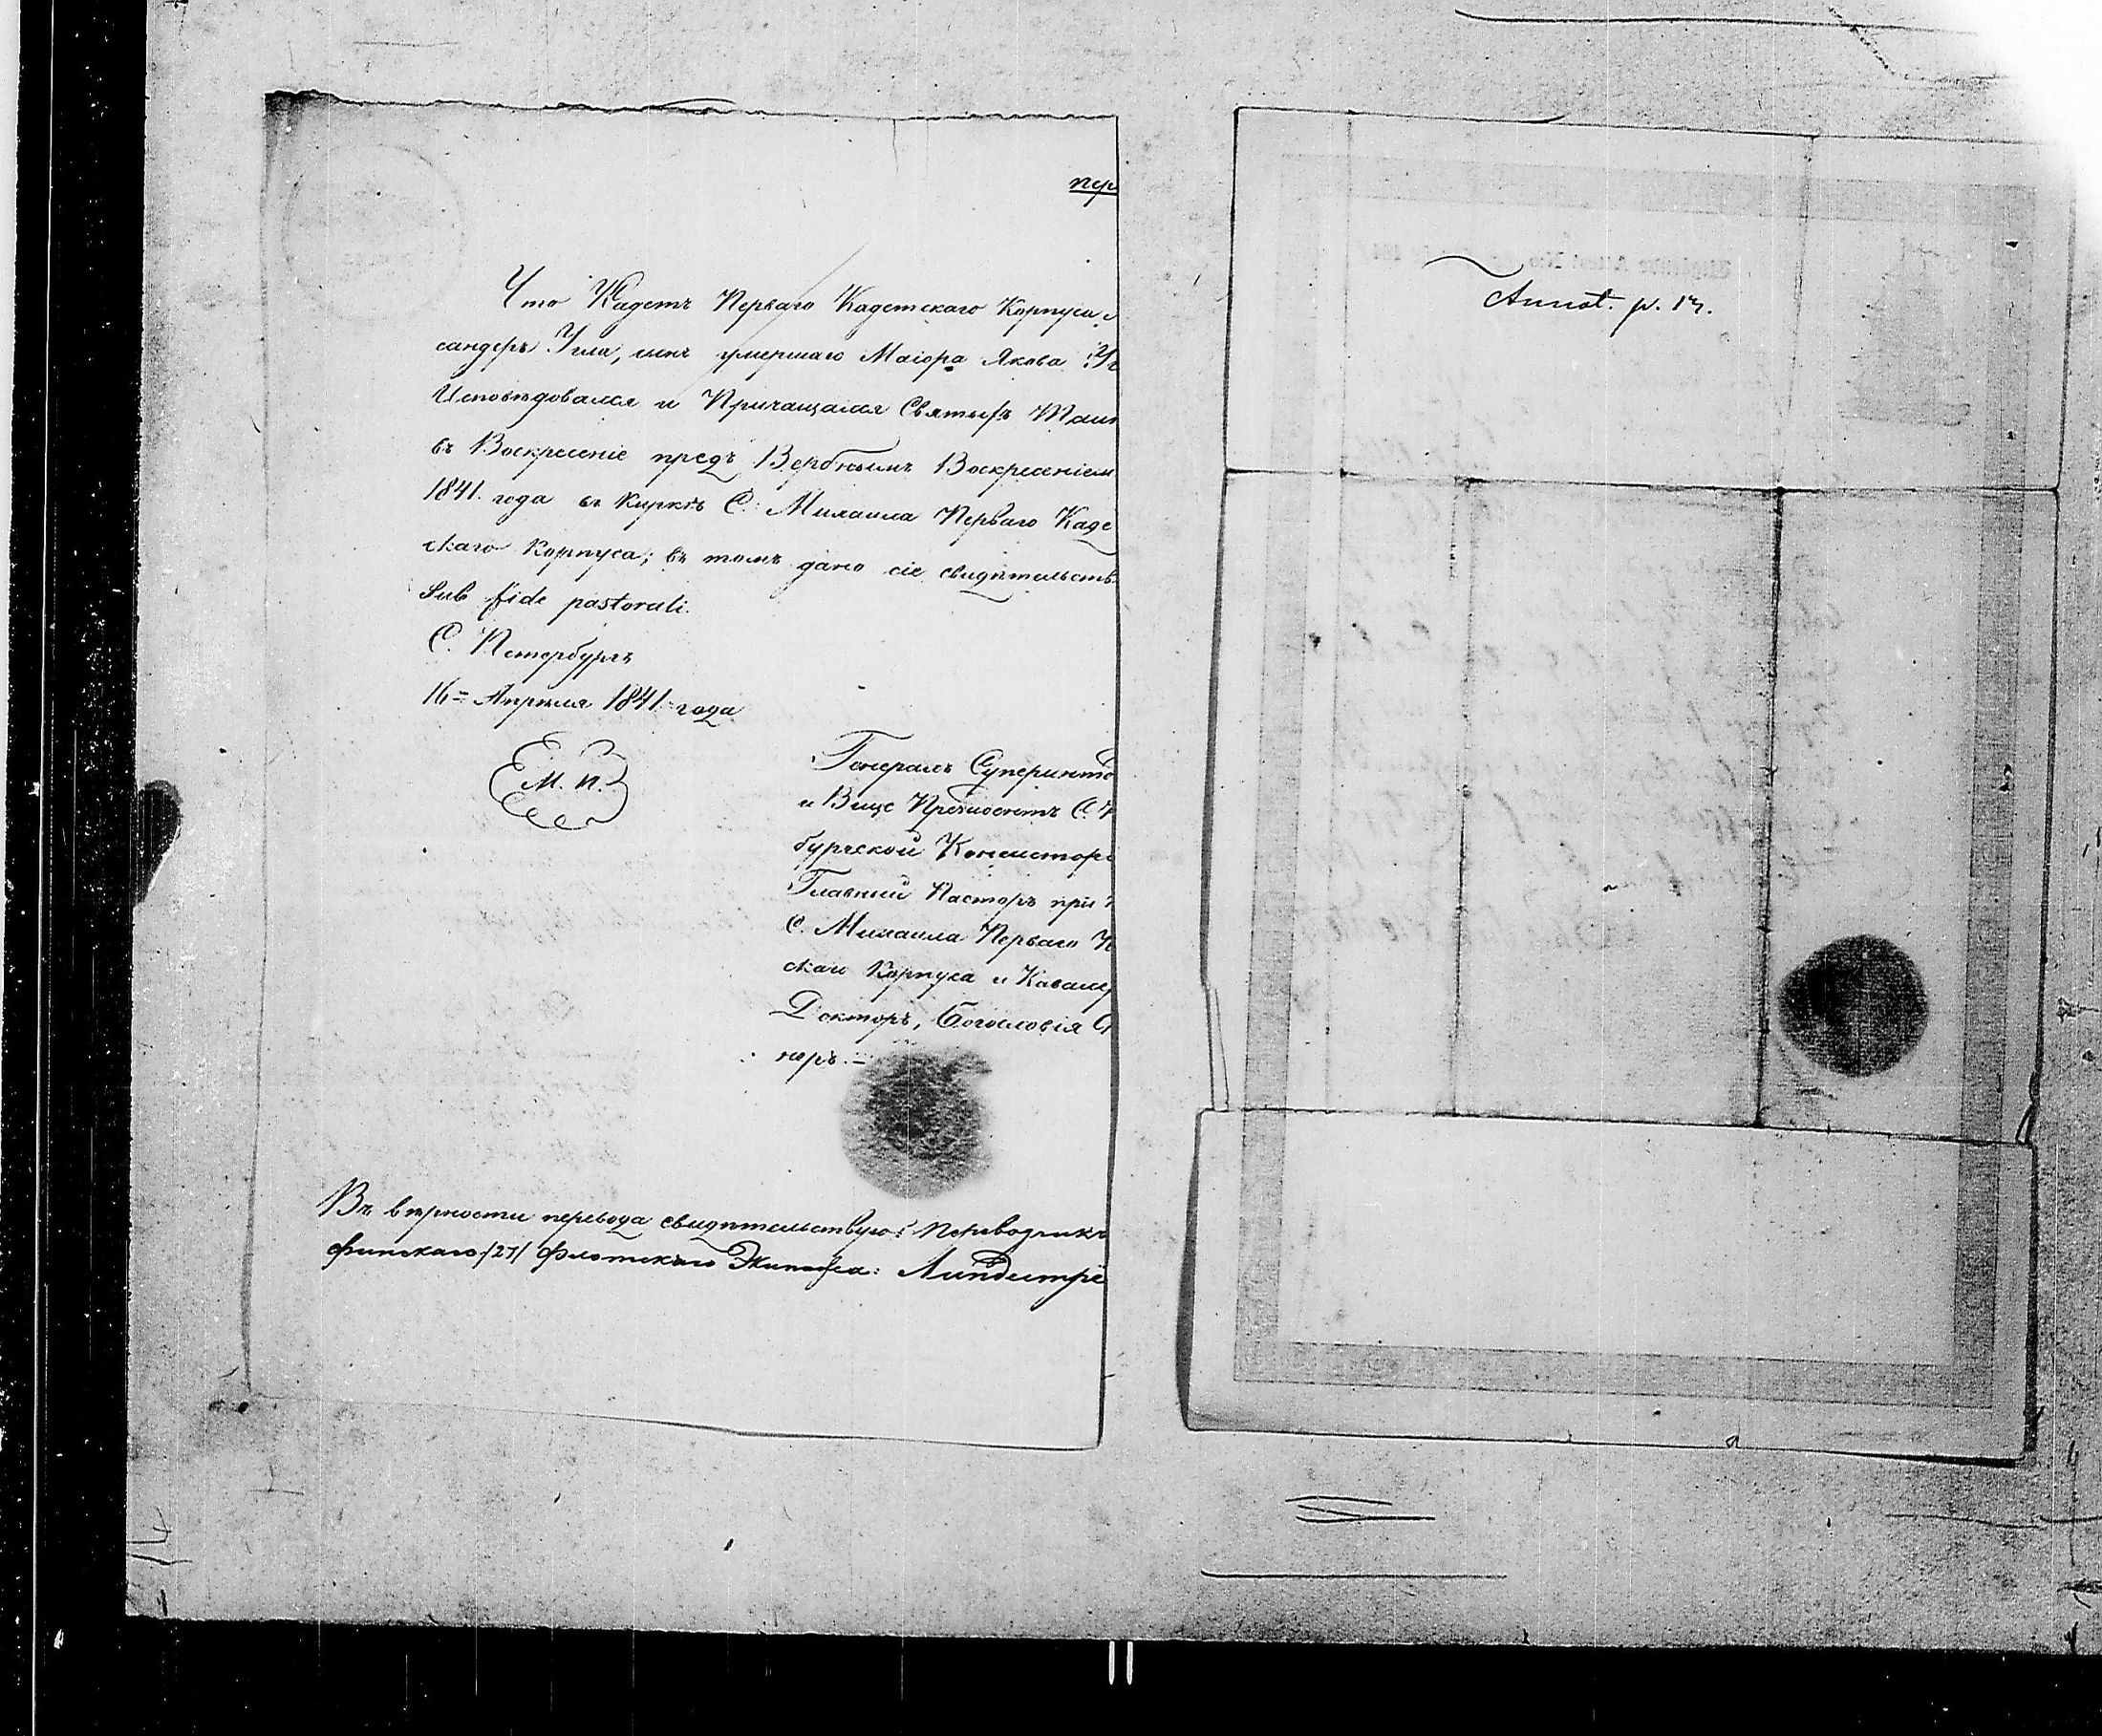 пер
Что Кадетъ Перваго Кадетскаго Корпуса
сандеръ Угла, сынъ умершаго Маіора Якова
Исповѣдовался и Причащался Святыхъ Таин
въ Воскресеніе предъ Вербнымъ Воскресеніем
1841. года въ Киркѣ С. Михаила Перваго Каде
скаго Корпуса; въ томъ дано сіе свидѣтельств
Sub fide pastorali.
С. Петербургъ
16= Апрѣля 1841. года
М. П.
Генералъ Суперинте
и Вице Президентъ С. П
бургской Консисторі
Главный Пасторъ при
С. Михаила Перваго К
скаго Корпуса и Кавалер
Докторъ, Богословія
неръ. –
Въ вѣрности перевода свидѣтельствую: Переводчикъ
финскаго /27/ Флотскаго Экипажа: Линдстре
Annot. p. 13.